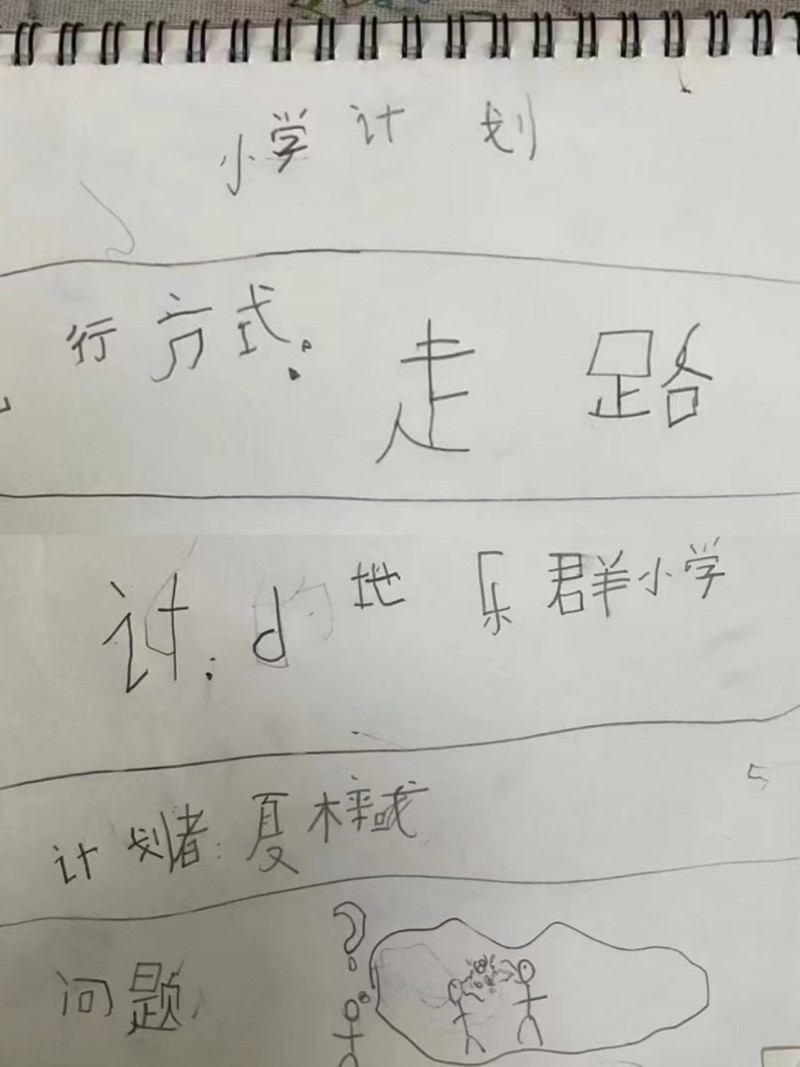 小学计划
行方式：走路
讨．d 地 乐群小学
计划者：夏梓彧
问题
?